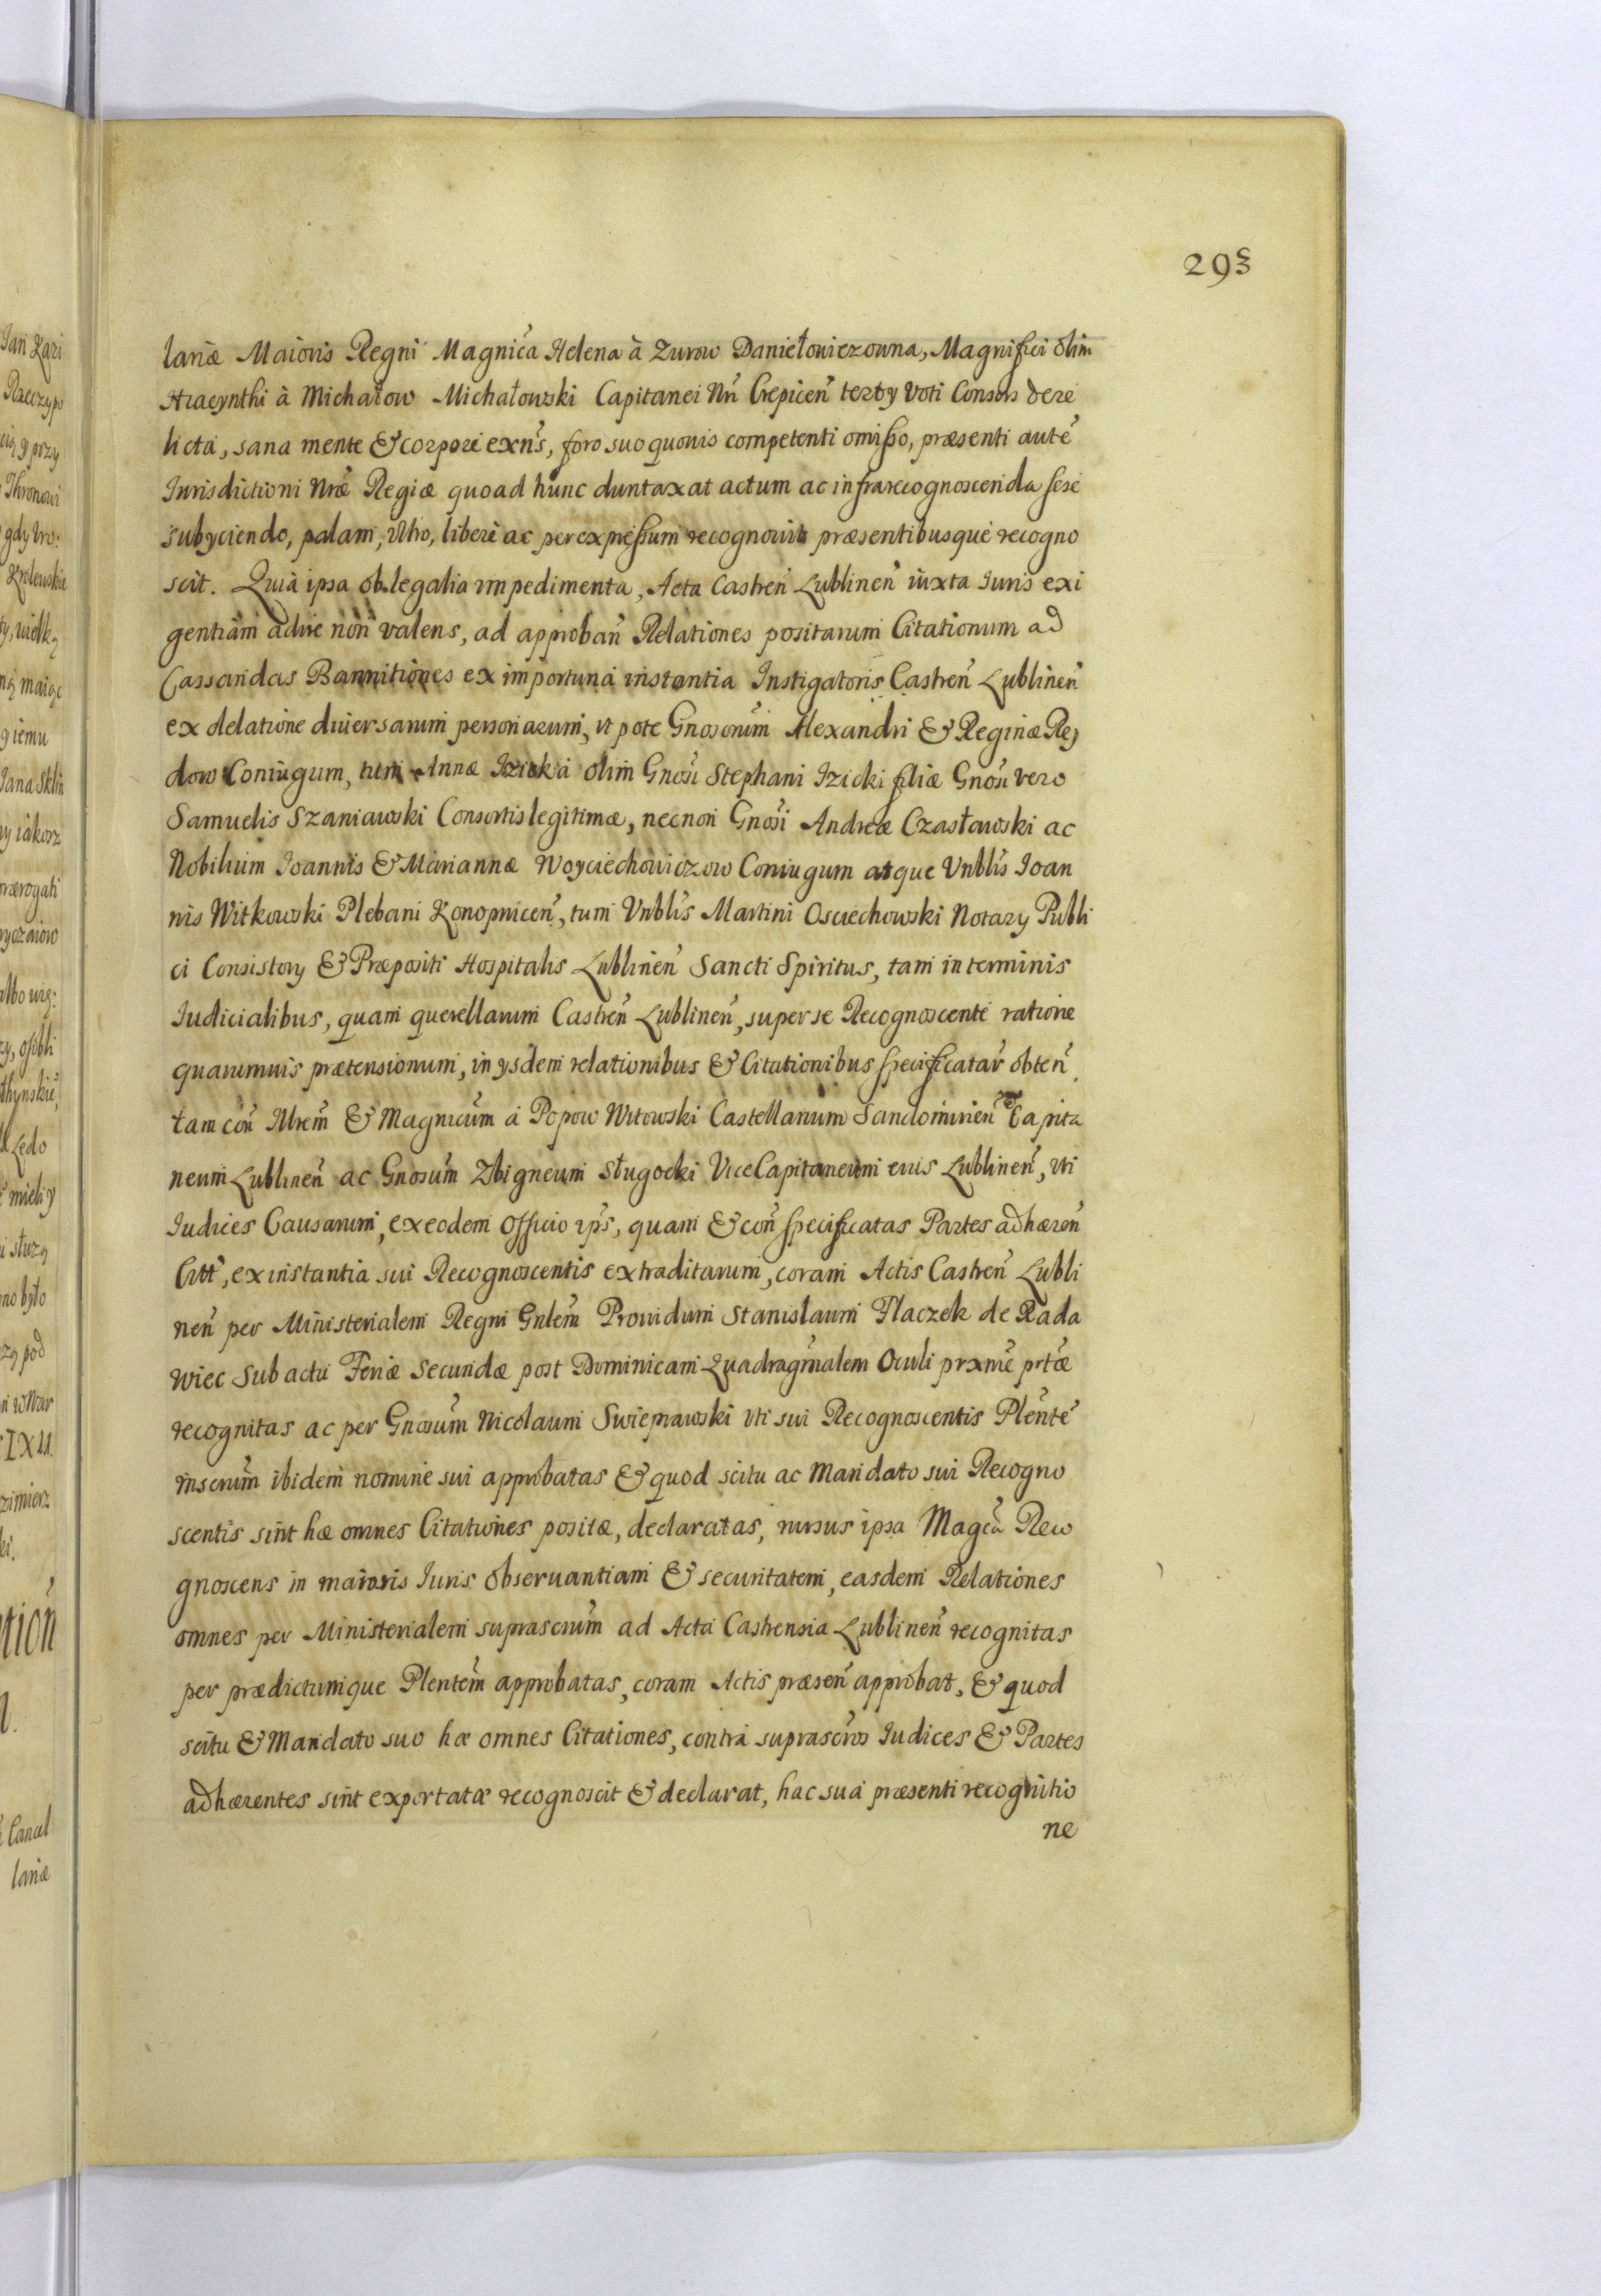 293
lariæ Maioris Regni Magnica Helena à Zurow Daniełowiczowna, Magnifici olim
Hiacynthi à Michałow Michałowski Capitanei Nri Crepicen tertÿ Voti Consors dere
licta, sana mente & corpore exns, foro suo quouis competenti omisso, præsenti aute
Jurisdictioni Nræ Regiæ quoad hunc duntaxat actum ac infrarecognoscenda sese
subÿciendo, palam, vltro, liberè ac per expressum recognouit præsentibusque recogno
scit. Quià ipsa ob legalia impedimenta, Acta Castren Lublinen iuxta Juris exi
gentiam adire non valens, ad approban Relationes positarum Citationum ad
Cassandas Bannitiones ex importuna instantia Instigatoris Castren Lublinen
ex delatione diuersarum personarum, vt pote Gnosorum Alexandri & Reginæ Rey
dow Coniugum, tum Annæ Izicka olim Gnosi Stephani Izicki filiæ Gnosi vero
Samuelis Szaniawski Consortis legitimæ, necnon Gnosi Andreæ Czasławski ac
Nobilium Joannis & Mariannæ Woyciechowiczow Coniugum atque Vnblis Joan
nis Witkowski Plebani Konopnicen, tum Vnblis Martini Osciechowski Notarÿ Publi
ci Consistorÿ & Præpositi Hospitalis Lublinen Sancti Spiritus, tam in terminis
Judicialibus, quam querellarum Castren Lublinen, super se Recognoscente ratione
quarumuis prætensionum, in ÿsdem relationibus & Citationibus specificatar obten
tam con Illrem & Magnicum à Popow Witowski Castellanum Sandomirien Capita
neum Lublinen ac Gnosum Zbigneum Sługocki ViceCapitaneum eius Lublinen, vti
Judices Causarum, ex eodem Officio ips, quam & con specificatas Partes adhæren
Citt, ex instantia sui Recognoscentis extraditarum, coram Actis Castren Lubli
nen per Ministerialem Regni Gnlem Prouidum Stanislaum Tlaczek de Rada
wiec sub actu Feriæ Secundæ post Dominicam Quadragmalem Oculi prxme prtæ
recognitas ac per Gnosum Nicolaum Swieprawski vti sui Recognoscentis Plente
inscrum ibidem nomine sui approbatas & quod scitu ac Mandato sui Recogno
scentis sint hæ omnes Citationes positæ, declaratas, rursus ipsa Magca Reco
gnoscens in maioris Juris obseruantiam & securitatem, easdem Relationes
omnes per Ministerialem suprascrum ad Acta Castrensia Lublinen recognitas
per prædictumque Plentem approbatas, coram Actis præsen approbat, & quod
scitu & Mandato suo hæ omnes Citationes, contra suprascros Judices & Partes
adhærentes sint exportatæ recognoscit & declarat, hac sua præsenti recognitio
ne